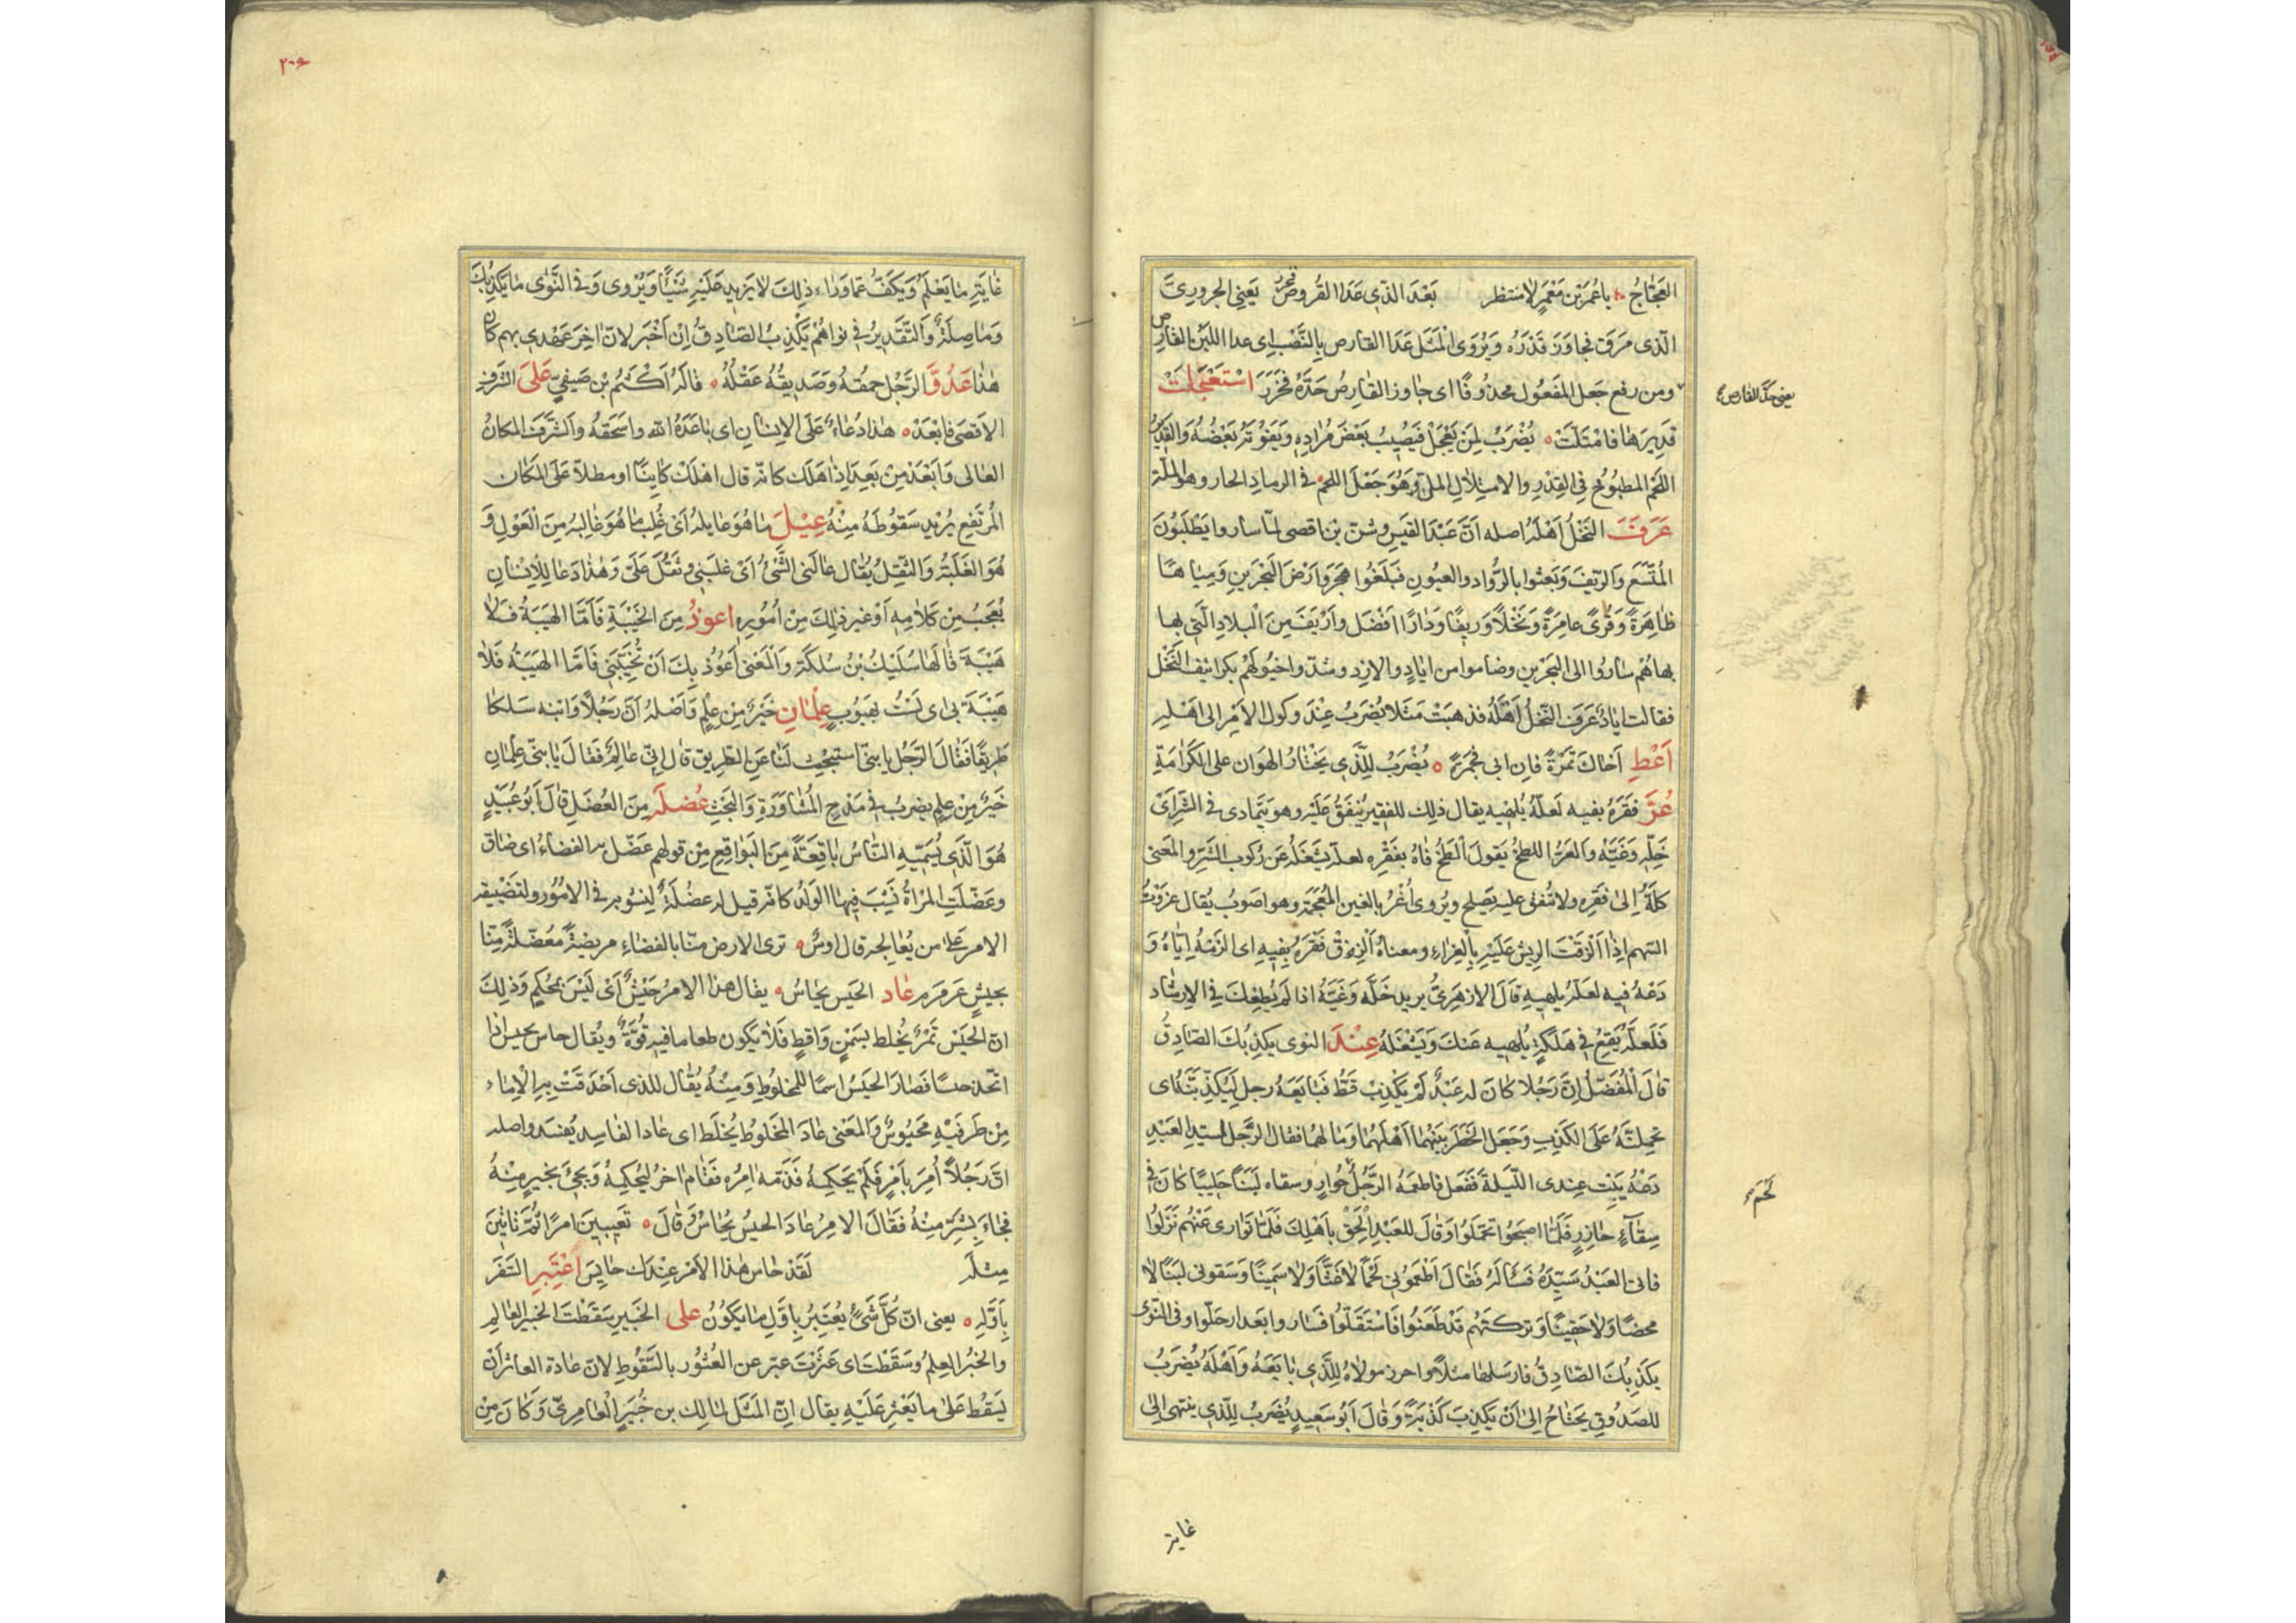 العَجّاجُ ياعُمَرَ بْن مَعْمَرٍ لامنتظر بَعْدَ الذّي عَدَا القُروصَ فحزر يَعني الحروريَّ
الّذي مَرَقَ فجاوَزَ قَدَرَهُ وَيُرْوَى المَثَل عَدَا القارص بِالنَّصْبِ اى عدا اللبَن القارص
ومن رفع جَعل المَفعُول محذُوفًا اى جاوز القارِصُ حَدَّهُ فَحَزَرَ اسْتَعْجَلَتْ
يعنى حدّ القارص
قَدِيرَهَا فامْتَلّتْ يُضْرَبُ لِمَن يَعْجَلْ فيَصُيبُ بَعْضَ مُرَادِهِ وَيَفوُتُه بَعْضُهُ وَالقَدِيرُ
اللّحْم المطبُوخُ فِي القِدْرِ والامتِلالِ الملّ وَهُوَ جَعْلَ اللحم في الرمادِ الحار وهو الملّة
عَرَفَ النَّخْلُ أَهْلَهُ اصله أنَّ عَبْدَ القَيسِ وشنّ بن اقصى لمّا ساروا يَطْلبُونَ
المُتَّسَعَ وَالرّيفَ وَبَعثوا بالرُّوّاد والعيُونِ فبَلَغُوا هَجَرَ وَارْضَ البَحْرَينِ وَمِيَاهًا
ظَاهِرَةً وَقُرًى عامِرَةً وَنَخْلاً وَرِيفًا وَدَارًا افْضَل وأرْيَفَ مِنَ البِلادِ الّتَي بها
بهاهُم ساروُا الى البَحْرينِ وضاموا من ايادٍ والازد وشدّوا خيُولَهُم بكرانيف النَّخْل
فقالت ايادٌ عَرَفَ النّخلُ أهْلَهُ فذهَبَتْ مَثَلا يُضرَبُ عِنْدَ وكول الأمْرِ الى اهْلهِ
أَعْطِ أخاكَ تَمْرَةً فاِن ابى فَجَمْرَةً يُضْرَبُ لِلّذَي يَخْتارُ الهَوانَ على الكَرامَةِ
عُرَّ فَقْرَهُ بفيه لَعَلّهُ يُلهيه يقال ذلِك للفقير يُنفَقُ عَلَيْهِ وهو يَتَمادى في الشّرّ اى
خَلِّهِ وَغَيَّهُ والعَرّ اللطخُ يَقولُ الْطَخْ فَاهُ بفَقْرِهِ لعلّه يَشْغَلُهُ عَن رُكوبِ الشَّرِّ والمَعْنى
كِلْهُ اِلىٰ فَقْرِهِ ولا تُنفق عليه يَصلح ويُروى أُغْرُ بالغين المُعْجَمَةِ وهو اصَوبُ يُقال غزَوْتُ
السّهم اِذَا الْزَقْتَ الرِيشَ عَلَيْهِ بِالْغِراءِ ومعناهُ الزِقْ فَقْرَهُ بِفِيهِ اى الزَمْهُ اِيّاهُ وَ
دَعْهُ فيه لعَلّهُ يُلهيهِ قَالَ الازهَرِيُّ يريد خَلّه وَغَيَّهُ اذا لَمْ يُطِعْكَ في الاِرشادِ
فَلَعَلّهُ يَقَعُ فِي هَلَكَةٍ يُلهِيهِ عَنكَ وَيَشْغَلهُ عِنْدَ النوى يَكذِبُكَ الصّادِقُ
قالَ المُفَضّلُ اِنَّ رَجُلا كانَ له عَبْدٌ لَمْ يَكْذِبْ قَطُّ فبَايَعَهُ رجل لَيُكَذِّبَنَّهُ اى
يَحْمِلَنَّهُ عَلَى الكَذِبِ وَجَعَلَ الخَطَرَ بَيْنَهما أَهْلَهُما وَمَا لَهُما فقال الرّجُلُ لسيّد العَبْدِ
دَعْهُ يَبِتْ عِندى اللّيلَةَ فَفَعَل فاطعَمَهُ الرّجُلُ حُوارٍ وسقاه لَبَنًا حَلِيبًا كانَ في
لَحْمَ
سِقاءٍ حازِرٍ فَلَمّا اصبَحُوا تحَمّلُوا وَقالَ للعَبْدِ الْحَقْ بِأَهْلِكَ فَلَمّا تَوارى عَنْهُم نَزَلُوا
فأتى العَبْدُ سَيِّدَهُ فَسَألَهُ فَقَالَ أطْعَمُونِي لَحْمًا لا غَثًّا وَلاسَمِينًا وَسَقوني لبَنًا لا
محضًا وَلا حَقِينًا وَتركتَهُم قَدْ طَعَنُوا فَاسْتَقَلّوا فَسَاروا بَعد ارحَلّوا وفى النّوى
يكَذِبُكَ الصَّادِقُ فارسَلها مثلاً واحرز مولاهُ لِلّذَي بَايَعَهُ وَأَهْلَهُ يُضْرَبُ
للصدُوقِ يَحْتاجُ اِلىٰ أنْ يَكْذِبَ كَذْبَةً وَقالَ أبُو سَعِيدٍ يُضرَبُ لِلّذِي ينتهى الىٰ
غايته
٢٠٩
غايَتِهِ مايَعْلَمُ وَيَكفّ عَمّا وَراء ذلِكَ لايَزِيدُ عَلَيْهِ شَيْئًا وَيُرْوى وَفي النَّوٰى مايَكْذِبُكَ
وَمَاصِلَةٌ وَالتَّقدِيرُ فِي نواهُمْ يَكْذِبُ الصّادِقُ اِنْ اَخْبَرَ لانّ اخِرَ عَهْدِي بِهِم كان
هٰذا عَدُوَّ الرَّجُلِ حمقُهُ وَصَدِيقُهُ عَقْلُهُ قالَهُ أكْثَمُ بْن صَيفيّ عَلَى الشَّرَفِ
الأقصى فابْعَدْ هذا دُعاءٌ عَلَى الاِنسَانِ اى باعَدَهُ الله واسحَقَهُ والشَّرَفُ المكانُ
العالى وَابْعَدْ مِنْ بَعِدَ اِذا هَلَك كانّه قال اهْلَكْ كايِنًا او مطلاً عَلَى المَكان
المُرْتَفِعِ يُرِيدُ سُقوطَهُ مِنْهُ عِيْلَ مَا هُوَ عايلهُ أىْ غُلِبَ ما هُوَ غالِبُهُ مِنَ العَوْلِ وَ
هُوَ الغَلَبَةُ وَالثِّقلُ يُقال عالَنى الشَّىْءُ أىْ غلَبَنِي وثَقُلَ عَلَيَّ وَهٰذا دَعا لِلاِنسانِ
يُعْجَبُ مِن كَلامِهِ أوْ غير ذٰلِكَ مِنْ أمُوُرِهِ اعوذُ مِنَ الخَيْبَةِ فَأمَّا الهَيْبَةُ فَلا
هَيْبَةَ قالَها سُلَيْكُ بْنُ سُلَكَةَ وَالْمَعْنى أعُوذُ بِكَ أنْ تُخَيِّبَنِي فَامّا الهَيْبَةُ فَلا
هَيْبَةَ بى اى لَسْتُ بِهَيُوبٍ عِلْمَانِ خَيرٌ مِنْ عِلْمٍ وَأصْلهُ أنّ رَجُلاً وَابْنه سَلكا
طَرِيقًا فَقالَ الرَّجُل يا بنيّ استبحِث لَنا عَنِ الطَّرِيقِ قالَ اِنّي عالِمٌ فقالَ يا بنيّ عِلْمانِ
خَيْرٌ مِنْ عِلْمٍ يضربُ في مَدْحِ المُشَاوَرَةِ وَالبَحْثِ عُضلَهُ مِنَ العُضَلِ قالَ أبُو عُبَيْدٍ
هُوَ الّذِي يُسَمّيهِ النّاسُ بَاقِعَةً مِنَ البَوَاقِعِ مِنْ قولهم عَضّل به الفضاءُ اى ضاق
وعَضّلَتِ المرْأةُ نَشِبَ فِيهَا الوَلَدُ كانّه قيل له عضُلَةٌ لِنشوُبه في الأمُورِ ولتَضْييقه
الأمر عَلى من يُعالِجه قال اوسٌ ترى الارض منّا بالفضاءِ مريضَةً مُعَضّلَةً مِنّا
بجيشٍ عَرَمرَم عَادَ الحَيس يحاسُ يقال هذا الأمر حَيْسٌ أىْ لَيْسَ بمُحْكَمٍ وَذٰلِكَ
انّ الحَيْس تَمْرٌ يُخلَط بسَمْنٍ وَاقِطٍ فَلا يَكُون طعاما فيه قوّةٌ ويُقال حاس يحيس اذا
اتّخذ حيسًا فصارَ الحَيسُ اسمًا للمخلُوطِ وَمِنْهُ يُقالُ للذى اَحْدَقَتْ بِهِ الاِماء
مِنْ طَرفَيْهِ مَحْيُوسٌ وَالمَعْنى عادَ المَخلُوطُ يُخلَط اى عَادَ الفاسِد يُفسَد واصله
انّ رَجُلاً أُمِرَ بأمْرٍ فَلَمْ يَحكِمهُ فَذَمّه امِرُه فَقَام اخرُ لِيُحْكِمَهُ وَيَجِئ بخَيرٍ مِنْهُ
فَجاءَ بِشَرٍّ مِنهُ فَقالَ الامِرُ عَادَ الحَيسُ يُحَاسُ وَقالَ تَعِيبِينَ امرًا ثُمَّ تاتِينَ
مِثلَه لَقَدْ حَاسَ هٰذا الأمْر عِندَك حايِسُ اعْتَبِرِ السَّفَرَ
بِأوَّلِهِ يعنى انّ كُلّ شَىْءٍ يُعْتَبَرُ بِأوّلِ مَا يَكُوُنُ على الخَبيرِ سَقَطْتَ الخَبِيرُ العَالِم
والخُبْرُ العِلْمُ وسَقَطْتَ اى عَثَرْتَ عبّر عن العُثوُر بالسّقُوطِ لانّ عادة العاثر أنْ
يَسْقُط عَلىٰ ما يَعْثر عَلَيْهِ يقال اِنّ المَثَلَ لمالِكِ بن جُبَيرٍ العامِرِيّ وَكانَ مِنْ